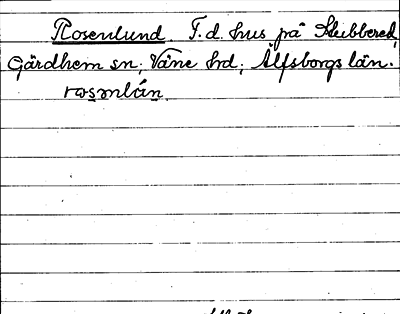 Rosenlund. F.d. hus på Klibbered,
Gärdhem sn; Väne hd; Älfsborgs län.